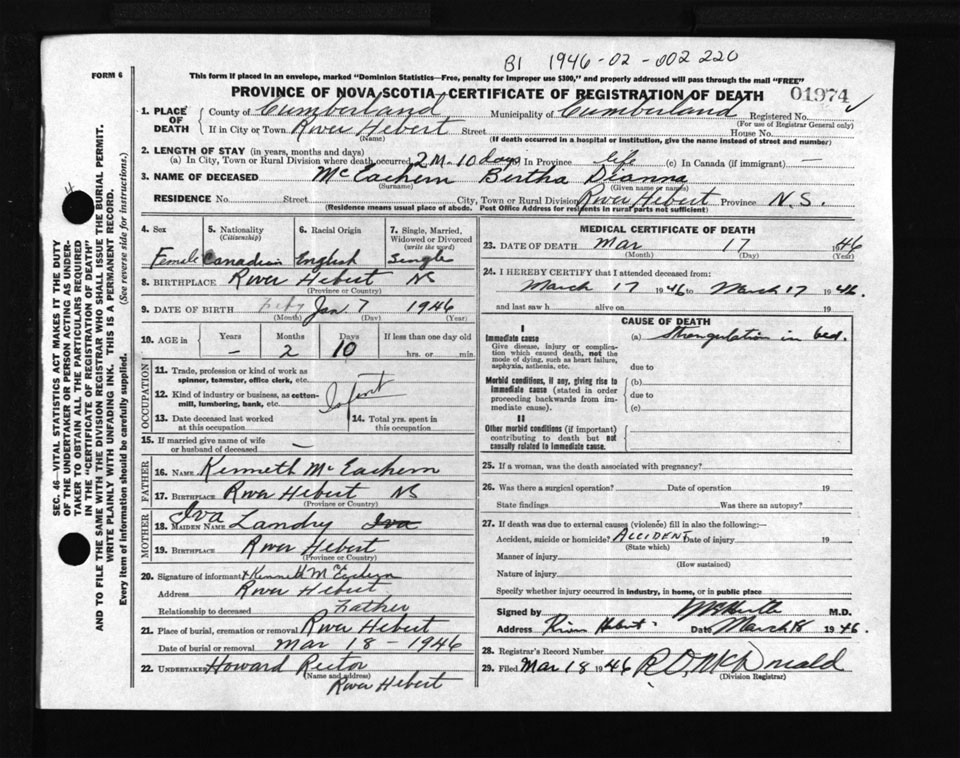 B1 1946-02-002220
FORM 6
This form if placed in an envelope, marked "Dominion Statistics—Free, penalty for improper use $300," and properly addressed will pass through the mail "FREE"
PROVINCE OF NOVA SCOTIA, CERTIFICATE OF REGISTRATION OF DEATH 01974
1. PLACE OF DEATH
County of Cumberland Municipality of Cumberland Registered No.
(For use of Registrar General only)
If in City or Town River Hebert Street House No.
(Name) (If death occurred in a hospital or institution, give the name instead of street and number)
2. LENGTH OF STAY (in years, months and days)
(a) In City, Town or Rural Division where death occurred 2 M. 10 days In Province life (c) In Canada (if immigrant) —
3. NAME OF DECEASED McEachern Bertha Dianna
(Surname) (Given name or names)
RESIDENCE No. Street City, Town or Rural Division River Hebert Province N.S.
(Residence means usual place of abode. Post Office Address for residents in rural parts not sufficient)
4. Sex 5. Nationality (Citizenship) 6. Racial Origin 7. Single, Married, Widowed or Divorced (write the word)
Female Canadian English Single
8. BIRTHPLACE River Hebert NS
(Province or Country)
9. DATE OF BIRTH Jan 7 1946
(Month) (Day) (Year)
10. AGE in Years Months Days If less than one day old
– 2 10 hrs. or min.
OCCUPATION
11. Trade, profession or kind of work as spinner, teamster, office clerk, etc.
12. Kind of industry or business, as cotton-mill, lumbering, bank, etc.
Infant
13. Date deceased last worked at this occupation
14. Total yrs. spent in this occupation
15. If married give name of wife or husband of deceased —
FATHER
16. NAME Kenneth McEachern
17. BIRTHPLACE River Hebert NS
(Province or Country)
MOTHER
Iva
18. MAIDEN NAME Landry Iva
19. BIRTHPLACE River Hebert
(Province or Country)
20. Signature of informant x Kenneth McEachern
Address River Hebert
Relationship to deceased Father
21. Place of burial, cremation or removal River Hebert
Date of burial or removal Mar 18 - 1946
22. UNDERTAKER Howard Rector
(Name and address)
River Hebert
MEDICAL CERTIFICATE OF DEATH
23. DATE OF DEATH Mar 17 1946
(Month) (Day) (Year)
24. I HEREBY CERTIFY that I attended deceased from:
March 17 1946 to March 17 1946.
and last saw h alive on 19
CAUSE OF DEATH
I
Immediate cause (a) Strangulation in bed.
Give disease, injury or complication which caused death, not the mode of dying, such as heart failure, asphyxia, asthenia, etc.
due to
Morbid conditions, if any, giving rise to immediate cause (stated in order proceeding backwards from immediate cause).
(b)
due to
(c)
II
Other morbid conditions (if important) contributing to death but not causally related to immediate cause.
25. If a woman, was the death associated with pregnancy?
26. Was there a surgical operation? Date of operation 19
State findings Was there an autopsy?
27. If death was due to external causes (violence) fill in also the following:—
Accident, suicide or homicide? ACCIDENT Date of injury 19
(State which)
Manner of injury
(How sustained)
Nature of injury
Specify whether injury occurred in industry, in home, or in public place
Signed by M.D.
Address River Hebert. Date March 18 1946.
28. Registrar's Record Number
29. Filed Mar 18 1946 R. D. McDonald
(Division Registrar)
SEC. 46—VITAL STATISTICS ACT MAKES IT THE DUTY
OF THE UNDERTAKER OR PERSON ACTING AS UNDER-
TAKER TO OBTAIN ALL THE PARTICULARS REQUIRED
IN THE "CERTIFICATE OF REGISTRATION OF DEATH"
AND TO FILE THE SAME WITH THE DIVISION REGISTRAR WHO SHALL ISSUE THE BURIAL PERMIT.
WRITE PLAINLY WITH UNFADING INK. THIS IS A PERMANENT RECORD.
Every item of information should be carefully supplied. (See reverse side for instructions.)